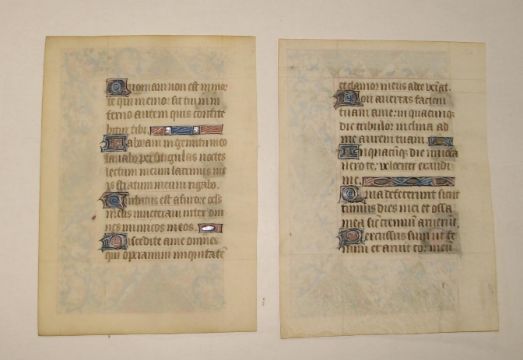 Quoniam non est in mor
te qui memor sit tui in in
ferno autem quis confite
bitur tibi.
Laboravi in gemitu meo
lavabo per singulas noctes
lectum meum lacrimis me
is stratum meum rigabo.
Turbatus est a furore ocls
meus inveteravi inter om
nes inimicos meos.
Discedite a me omnes
qui operamini iniquitatē
et clamor meus ad te veniat.
Non avertas faciem
tuam a me: in quacumq
die tribulor inclina ad
me aurem tuam.
In quacumq die invoca
vero te: velociter exaudi
me.
Quia defecerunt sicut
fumus dies mei et ossa
mea sic cremium
Percussus sum ut fe
num et aruit cor meū